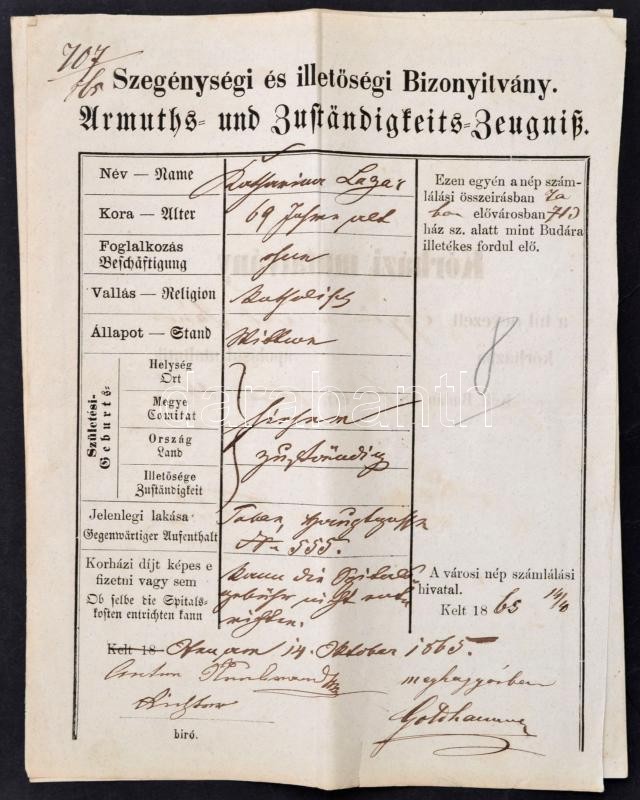 707
Szegénységi és illetőségi Bizonyitvány.
Armuths- und Zuständigkeits-Zeugniß.
Név — Name
Katharina Lazar
Kora — Alter
69 Jahre alt
Foglalkozás
Beschäftigung
ohne
Vallás — Religion
Katholisch
Állapot — Stand
Wittwe
Születési-
Geburts-
Helység
Ort
Megye
Comitat
Ország
Land
Illetősége
Zuständigkeit
hieher
zuständig
Jelenlegi lakása
Gegenwärtiger Aufenthalt
Taban, Hauptgasse
No 555.
Korházi díjt képes e
fizetni vagy sem
Ob selbe die Spitals-
kosten entrichten kann
Kann die Spitals
gebühr nicht ent-
richten.
Ezen egyén a nép szám-
lálási összeirásban Ta
ban elővárosban 713
ház sz. alatt mint Budára
illetékes fordul elő.
8
A városi nép számlálási
hivatal.
Kelt 18 65 14/10
Kelt 18
14. Oktober 1865.
Anton
Richter
biró.
Goldhammer
darabanth